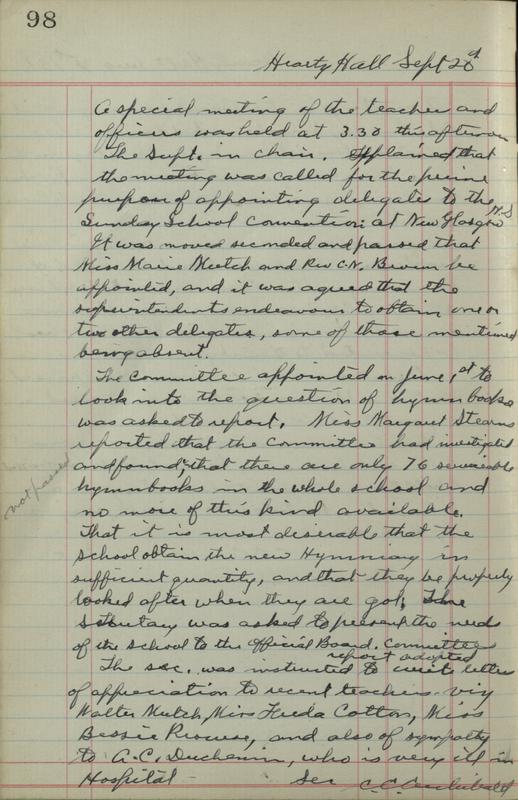 98
Hearty Hall Sept 20
A special meeting of the teacher and
officers was held at 3.30 this afternoon
The Supt. in chair. Explained that
the meeting was called for the
purpose of appointing delegates to the
Sunday School Convention at New Glasgow N.S
It was moved seconded and passed that
Miss Marie Mutch and Rev C.N. be
appointed, and it was agreed that the
superintendents endeavour to obtain one or
two other delegates, some of those mentioned
being absent.
The Committee appointed on June 1st to
look into the question of hymn books
was asked to report. Miss Margaret Stearns
reported that the Committee had investigated
and found, that there are only 76 serviceable
not passed
hymnbooks in the whole school and
no more of this kind available.
That it is most desirable that the
school obtain the new Hymniary in
sufficient quantity, and that they be properly
looked after when they are got. The
secretary was asked to present the needs
of the school to the Official Board. Committee
report adopted
The sec. was instructed to write letters
of appreciation to recent teachers. viz
Walter Mutch, Miss Freda Cotton, Miss
Bessie Prowse, and also of sympathy
to A.C. Duchemin, who is very ill in
Hospital - Sec C.C. Archibald